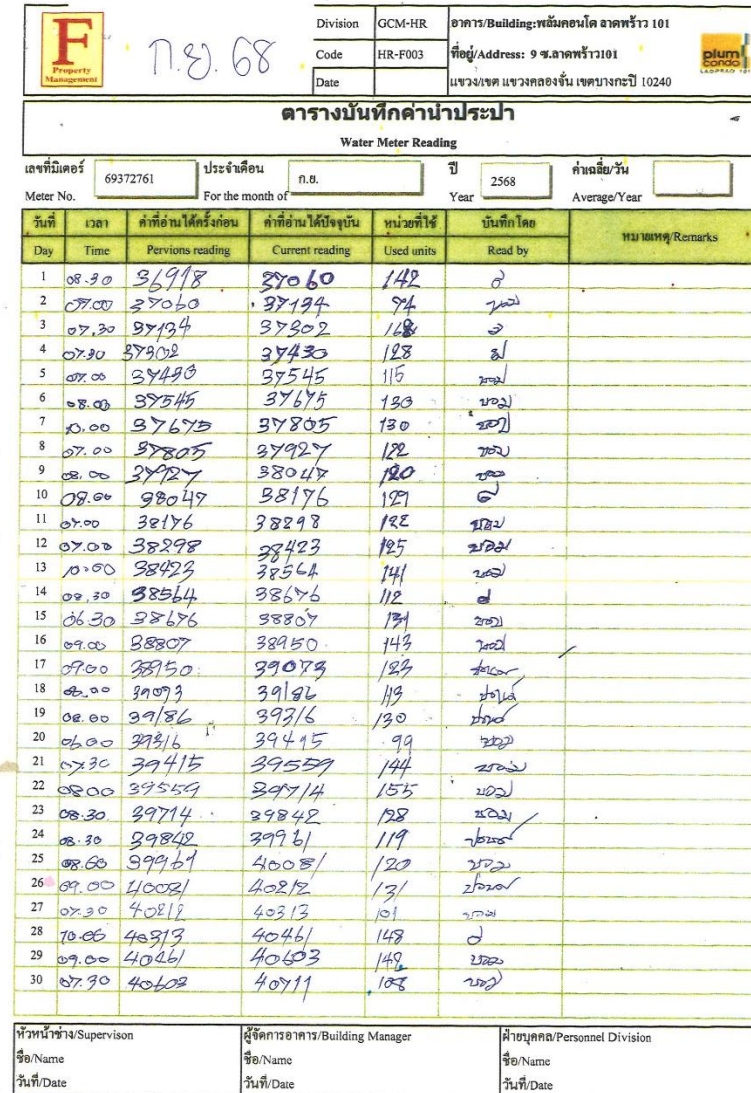 F
Property
Management
ก.ย. 68
Division GCM-HR อาคาร/Building:พลัมคอนโด ลาดพร้าว 101
Code HR-F003 ที่อยู่/Address: 9 ซ.ลาดพร้าว101
Date แขวง/เขต แขวงคลองจั่น เขตบางกะปิ 10240
plum
condo
LADPRAO 101
ตารางบันทึกค่าน้ำประปา
Water Meter Reading
เลขที่มิเตอร์ 69372761 ประจำเดือน ก.ย. ปี 2568 ค่าเฉลี่ย/วัน
Meter No. For the month of Year Average/Year
วันที่ เวลา ค่าที่อ่านได้ครั้งก่อน ค่าที่อ่านได้ปัจจุบัน หน่วยที่ใช้ บันทึกโดย หมายเหตุ/Remarks
Day Time Pervions reading Current reading Used units Read by
1 08.30 36918 37060 142
2 07.00 37060 37134 74
3 07.30 37134 37302 168
4 07.30 37302 37430 128
5 07.00 37430 37545 115
6 08.00 37545 37675 130
7 10.00 37675 37805 130
8 07.00 37805 37927 122
9 08.00 37927 38047 120
10 08.00 38047 38176 129
11 07.00 38176 38298 122
12 07.00 38298 38423 125
13 10.00 38423 38564 141
14 08.30 38564 38676 112
15 06.30 38676 38807 131
16 09.00 38807 38950 143
17 09.00 38950 39073 123
18 39073 39186 113
19 08.00 39186 39316 130
20 06.00 39316 39415 99
21 07.30 39415 39559 144
22 08.00 39559 39714 155
23 08.30 39714 39842 128
24 08.30 39842 39961 119
25 08.00 39961 40081 120
26 09.00 40081 40212 131
27 07.30 40212 40313 101
28 10.00 40313 40461 148
29 09.00 40461 40603 142
30 07.30 40603 40711 108
หัวหน้าช่าง/Supervison ผู้จัดการอาคาร/Building Manager ฝ่ายบุคคล/Personnel Division
ชื่อ/Name ชื่อ/Name ชื่อ/Name
วันที่/Date วันที่/Date วันที่/Date